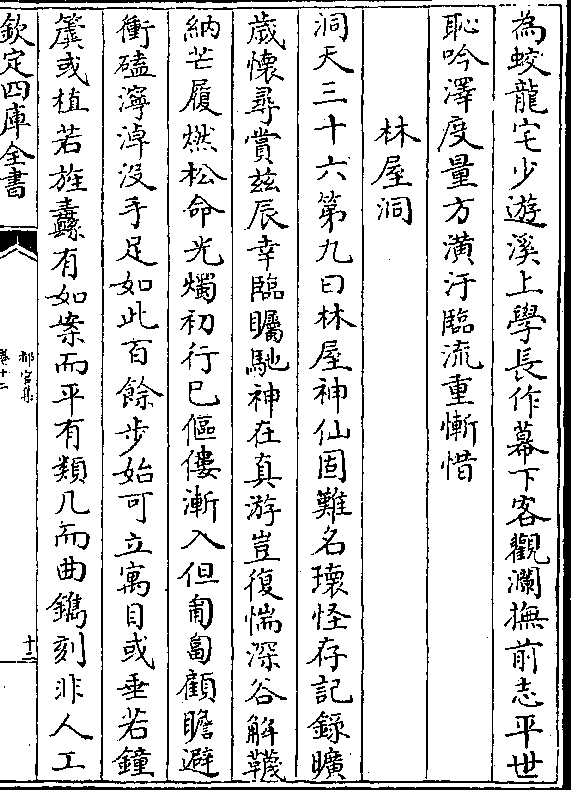 為蛟龍宅少遊溪上學長作幕下客觀瀾撫前志平世
恥吟澤度量方潢汙臨流重慚惜
林屋洞
洞天三十六第九曰林屋神仙固難名瓌怪存記錄曠
歲懷尋賞兹辰幸臨矚馳神在真游豈復惴深谷解韈
納芒履燃松命光燭初行已傴僂漸入但匍匐顧瞻避
衝磕濘淖没手足如此百餘步始可立寓目或垂若鐘
簴或植若旌纛有如案而平有類几而曲鐫刻非人工
欽定四庫全書
都官集
卷十二
十三